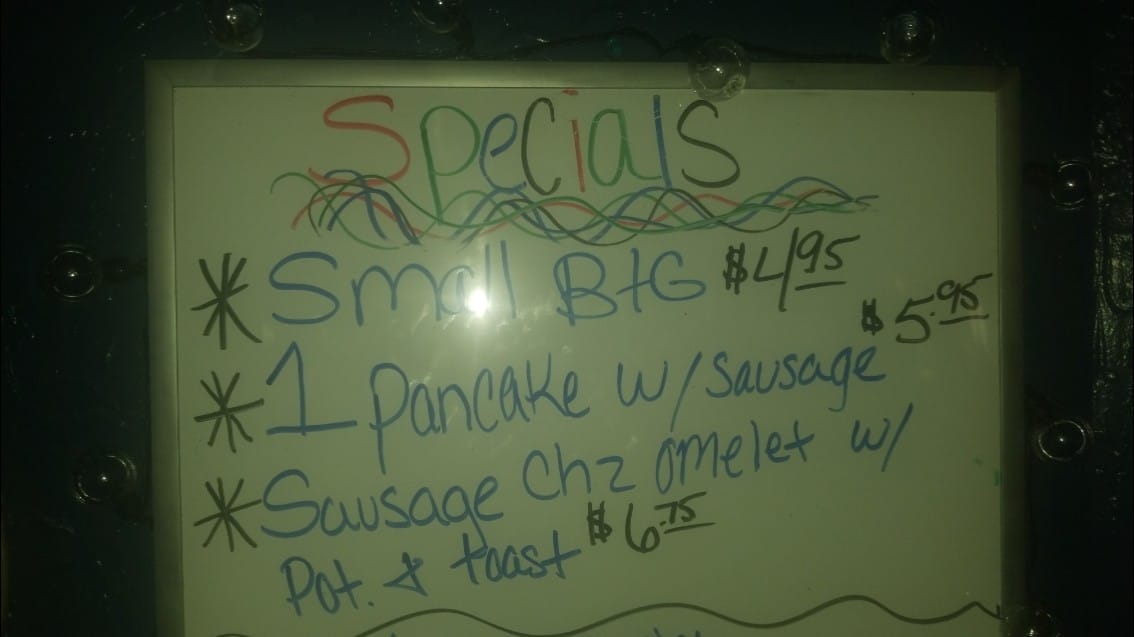 Specials
* Small B+G $4.95
* 1 Pancake w/ Sausage $5.95
* Sausage Chz omelet w/
Pot. & toast $6.75